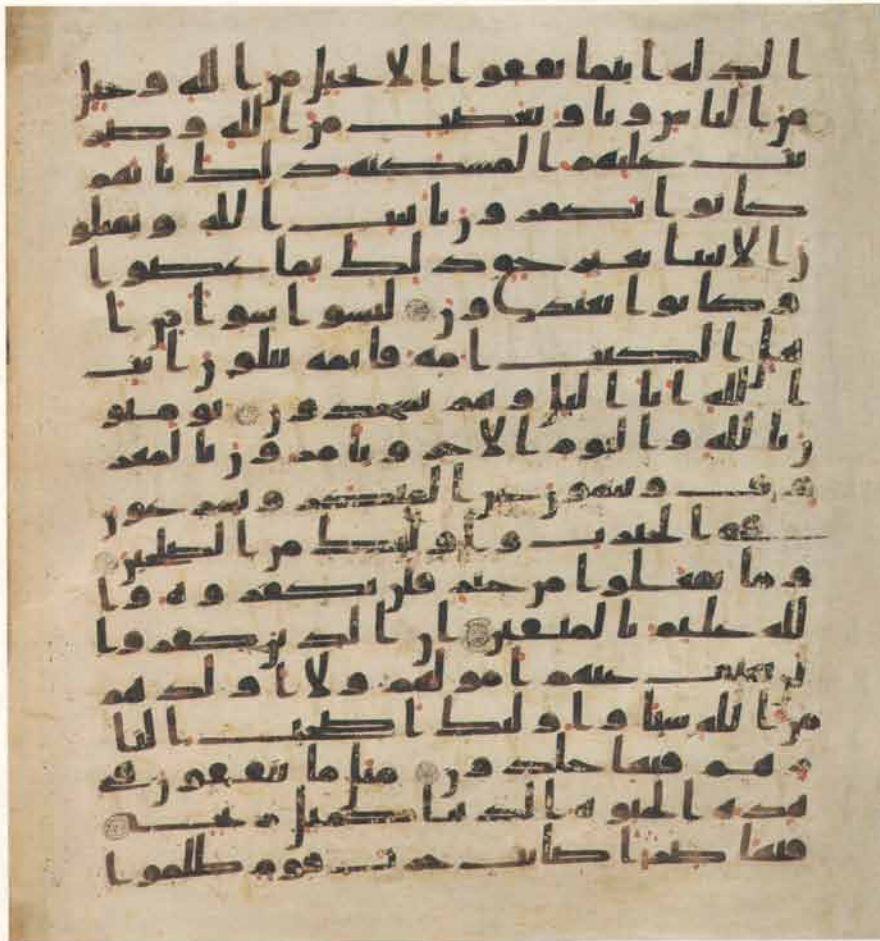 الذله اينما ثقفوا الا بحبل من الله وحبل
من الناس وباو بغضب من الله وضر
بت عليهم المسكنه ذلك بانهم
كانوا يكفرون بايت الله ويقتلو
ن الانبيا بغير حق ذلك بما عصوا
وكانوا يعتدون ليسوا سوا من ا
هل الكتب امه قايمه يتلون ايت
الله انا اليل وهم يسجدون يومنو
ن بالله واليوم الاخر ويامرون بالمعر
وف وينهون عن المنكر ويسرعون
في الخيرت واوليك من الصلحين
وما يفعلوا من خير فلن يكفروه وا
لله عليم بالمتقين ان الذين كفروا
لن تغني عنهم امولهم ولا اولدهم
من الله شيا واوليك اصحب النا
ر هم فيها خلدون مثل ما ينفقون في
هذه الحيوه الدنيا كمثل ريح
فيها صر اصابت حرث قوم ظلموا